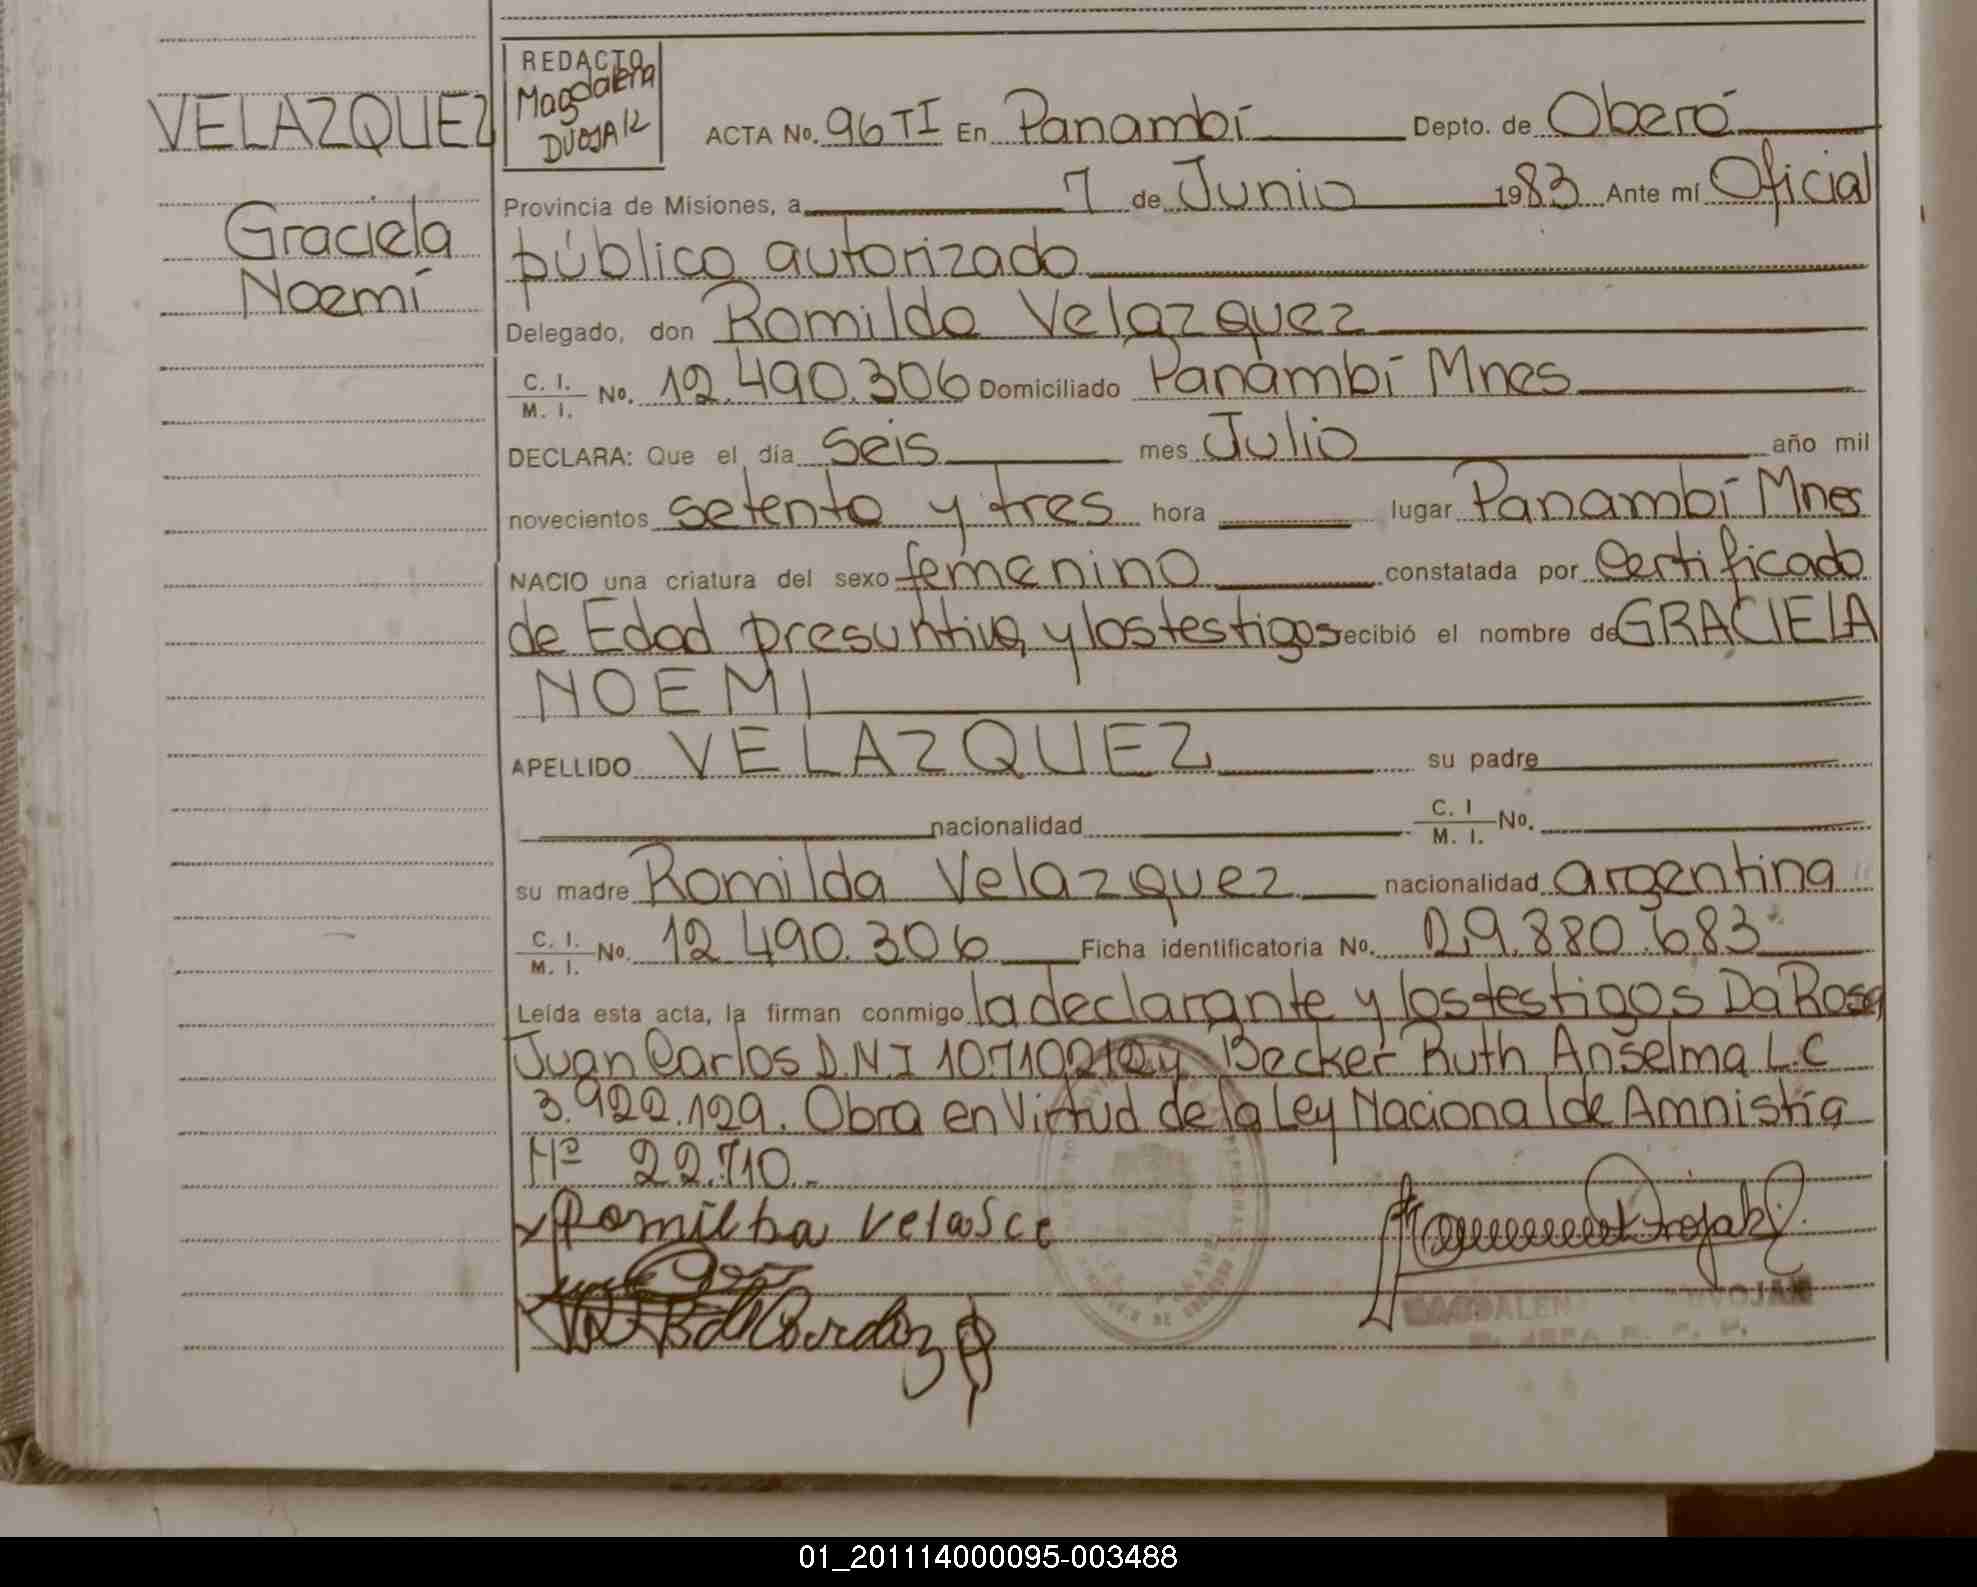 REDACTO
Magdalena
VELAZQUEZ
ACTA No. 96 TI En Panambí Depto. de Oberá
Provincia de Misiones, a 7 de Junio 1983 Ante mí Oficial
Graciela
público autorizado
Noemí
Delegado, don Romilda Velazquez
C. I.
M. I. No. 12.490.306 Domiciliado Panambí Mnes
DECLARA: Que el día Seis mes Julio año mil
novecientos setenta y tres hora lugar Panambí Mnes
NACIO una criatura del sexo femenino constatada por Certificado
de Edad presuntiva y los testigos recibió el nombre de GRACIELA
NOEMI
APELLIDO VELAZQUEZ su padre
nacionalidad C. I
M. I. No.
su madre Romilda Velazquez nacionalidad argentina
C. I.
M. I. No. 12.490.306 Ficha identificatoria No. 29.880.683
Leída esta acta, la firman conmigo la declarante y los testigos Da Rosa
Juan Carlos D.N.I 10.710.212 y Becker Ruth Anselma L.C
3.922.129. Obra en Virtud de la Ley Nacional de Amnistía
Nº 22.710.-
Romilba Velasce
01_201114000095-003488